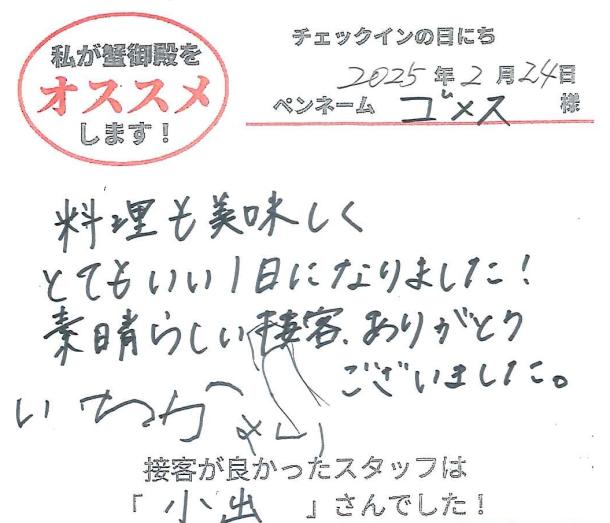 私が蟹御殿を
オススメ
します！
チェックインの日にち
2025年2月24日
ペンネーム ゴメス 様
料理も美味しく
とてもいい1日になりました！
素晴らしい接客、ありがとう
ございました。
接客が良かったスタッフは
「 小出 」さんでした！